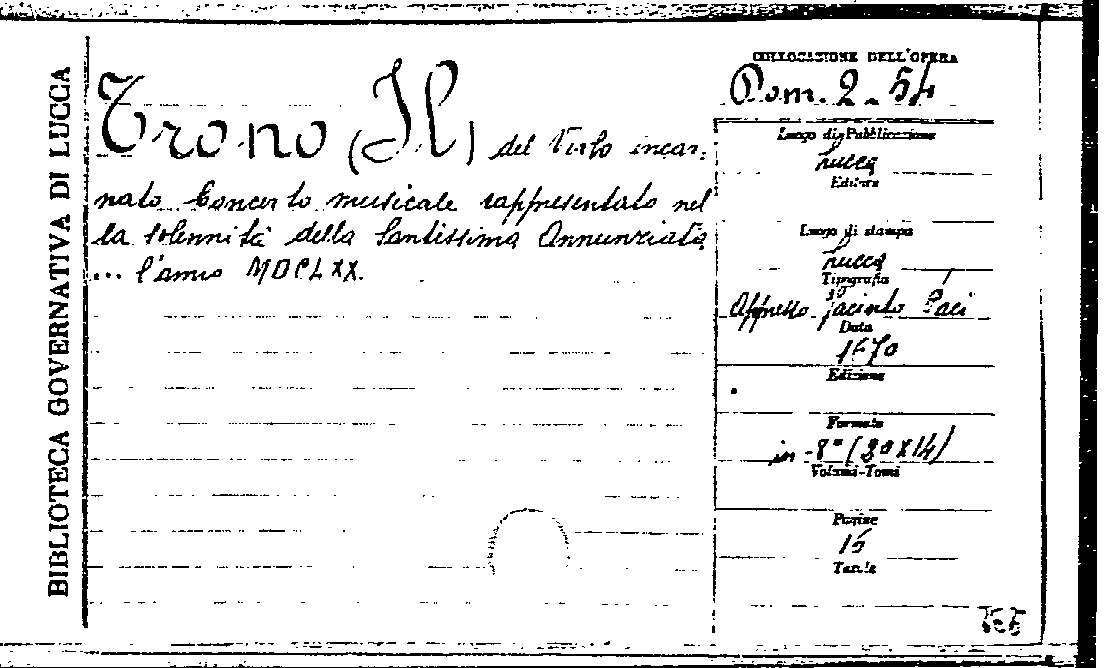 BIBLIOTECA GOVERNATIVA DI LUCCA
Trono (Il) del Verbo incar-
nato Concerto musicale rappresentato nel
la solennità della Santissima Annunziata
... l'anno MDCLXX.
COLLOCAZIONE DELL'OPERA
Dom. 2. 54
Luogo di Pubblicazione
Lucca
Editore
Luogo di stampa
Lucca
Tipografia
Appresso Jacinto Paci
Data
1670
Edizione
Formato
in-8° (20X14)
Volumi-Tomi
Pagine
15
Tavole